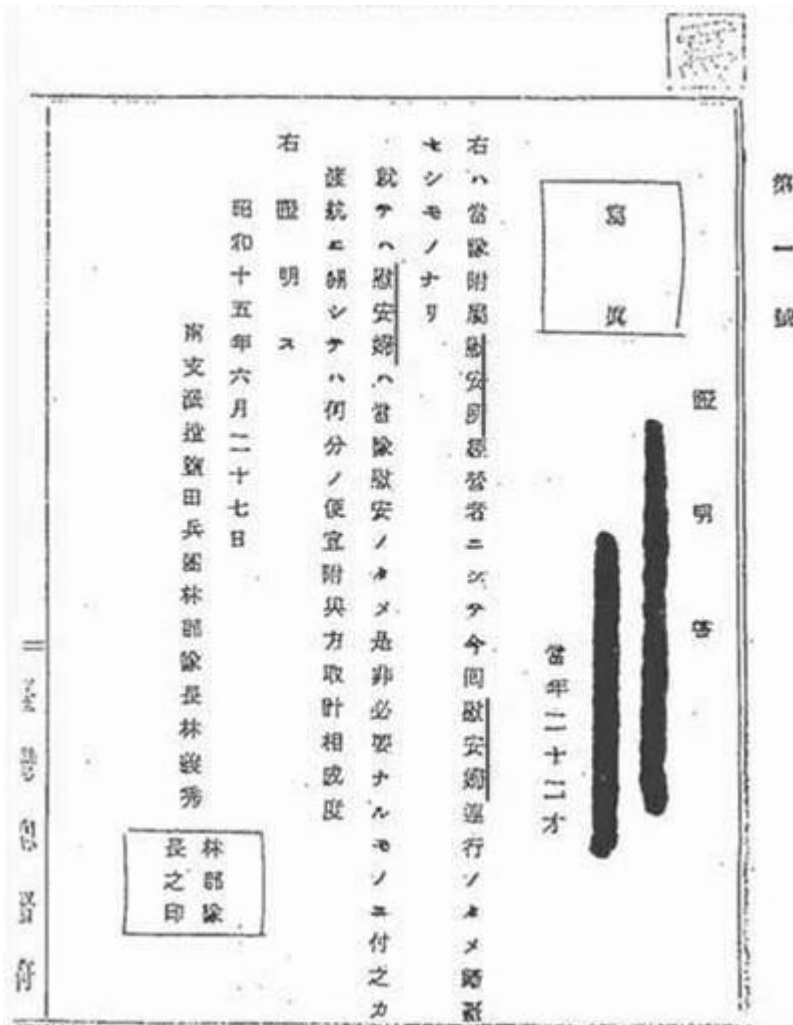 第一號
證明書
當年二十二才
寫眞
右ハ當隊附屬慰安所經營者ニシテ今回慰安婦連行ノタメ歸臺
セシモノナリ
就テハ慰安婦ハ當隊慰安ノタメ是非必要ナルモノニ付之カ
渡航ニ關シテハ何分ノ便宜附與方取計相成度
右證明ス
昭和十五年六月二十七日
南支派遣鹽田兵團林部隊長林義秀
林部隊
長之印